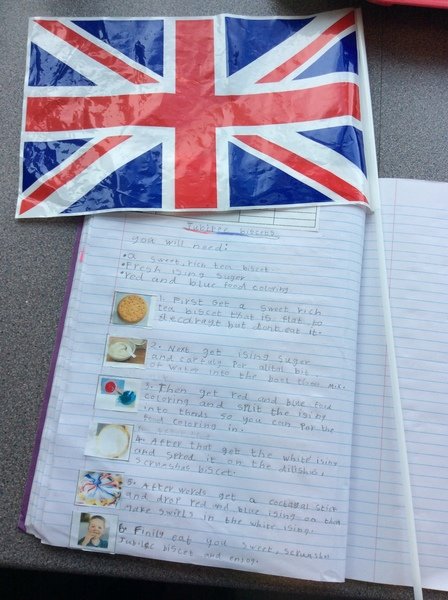 Jubilee biscuits
you will need:
•a sweet, rich tea biscet
•Fresh ising sugar
•red and blue food coloring
1. First Get a sweet rich
tea biscet that is flat to
decarayt but dont eat it.
2. Next get ising sugar
and carfuly por alitol bit
of water into the bowl then mix.
3. Then get red and blue food
coloring and split the ising
into thirds so you can por the
food coloring in.
4. After that get the white ising
and spred it on the dilishas,
scrumshas biscet.
5. After words get a coctayal stick
and drop red and blue ising on than
make swirls in the white ising.
6. Finily eat you sweet, scrumshs
Jubilee biscet and enjoy.